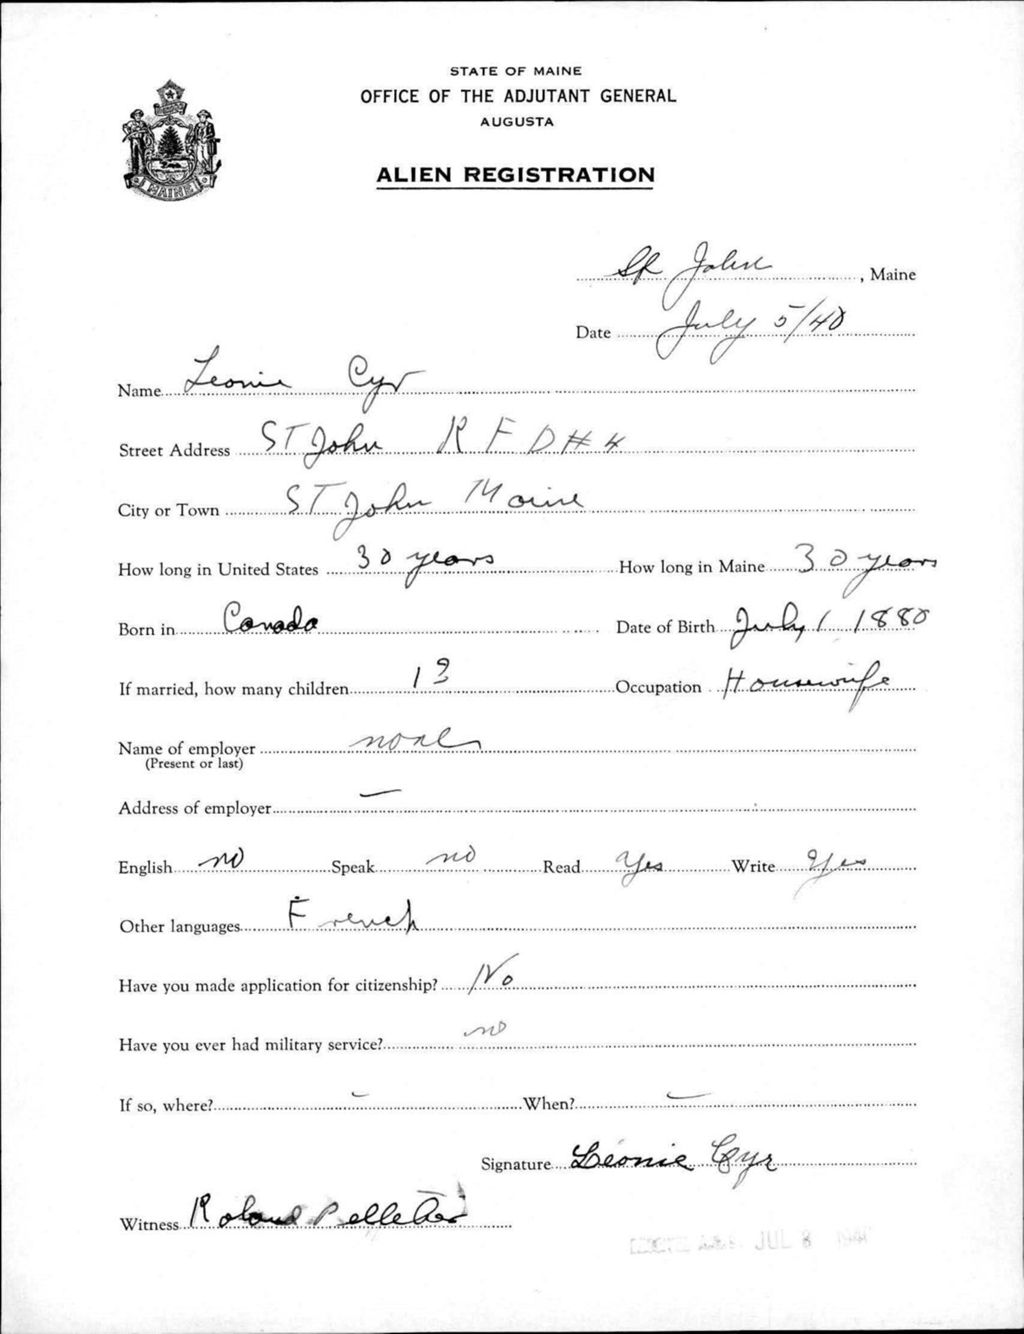 STATE OF MAINE
OFFICE OF THE ADJUTANT GENERAL
AUGUSTA
ALIEN REGISTRATION
MAINE
St John, Maine
Date July 5/40
Name Leonie Cyr
Street Address ST John R F D # 4
City or Town ST John Maine
How long in United States 30 years How long in Maine 30 years
Born in Canada Date of Birth July 1 1880
If married, how many children 13 Occupation Housewife
Name of employer none
(Present or last)
Address of employer —
English no Speak no Read Yes Write Yes
Other languages French
Have you made application for citizenship? No
Have you ever had military service? no
If so, where? – When? –
Signature Léonie Cyr
Witness Roland Pelletier
JUL 8 1940